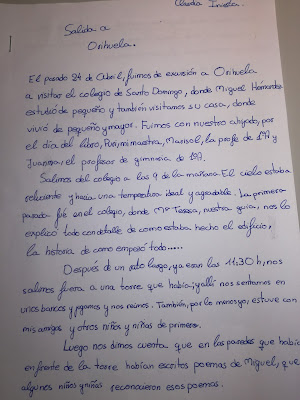 Claudia Iniesta.
Salida a
Orihuela.
El pasado 24 de Abril, fuimos de excursión a Orihuela
a visitar el colegio de Santo Domingo, donde Miguel Hernández
estudió de pequeño y también visitamos su casa, donde
vivió de pequeño y mayor. Fuimos con nuestro ahijado, por
el día del libro, Puri, mi maestra, Marisol, la profe de 1ºA y
Juanjo, el profesor de gimnasia de 1ºA.
Salimos del colegio a las 9 de la mañana. El cielo estaba
reluciente y hacía una temperatura ideal y agradable. La primera
parada fué en el colegio, donde Mª Teresa, nuestra guía, nos lo
explicó todo con detalle de como estaba hecho el edificio,
la historia de como empezó todo.....
Después de un rato largo, ya eran las 11:30 h, nos
salimos fuera a una torre que había, y allí nos sentamos en
unos bancos y jugamos y nos reímos. También, por lo menos yo, estuve con
mis amigos y otros niños y niñas de primero.
Luego nos dimos cuenta que en las paredes que había
en frente de la torre habían escritos poemas de Miguel, que
algunos niños y niñas reconocieron esos poemas.